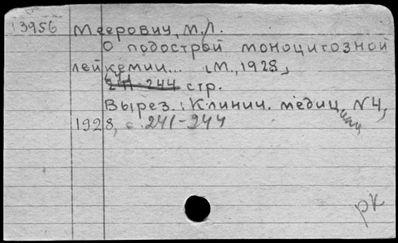 13956 Меерович, М.Л.
О подострой моноцитозной
лейкемии... М., 1928,
241-244 стр.
Вырез.: Клинич. медицина, N4,
1928, с. 241-244
рк